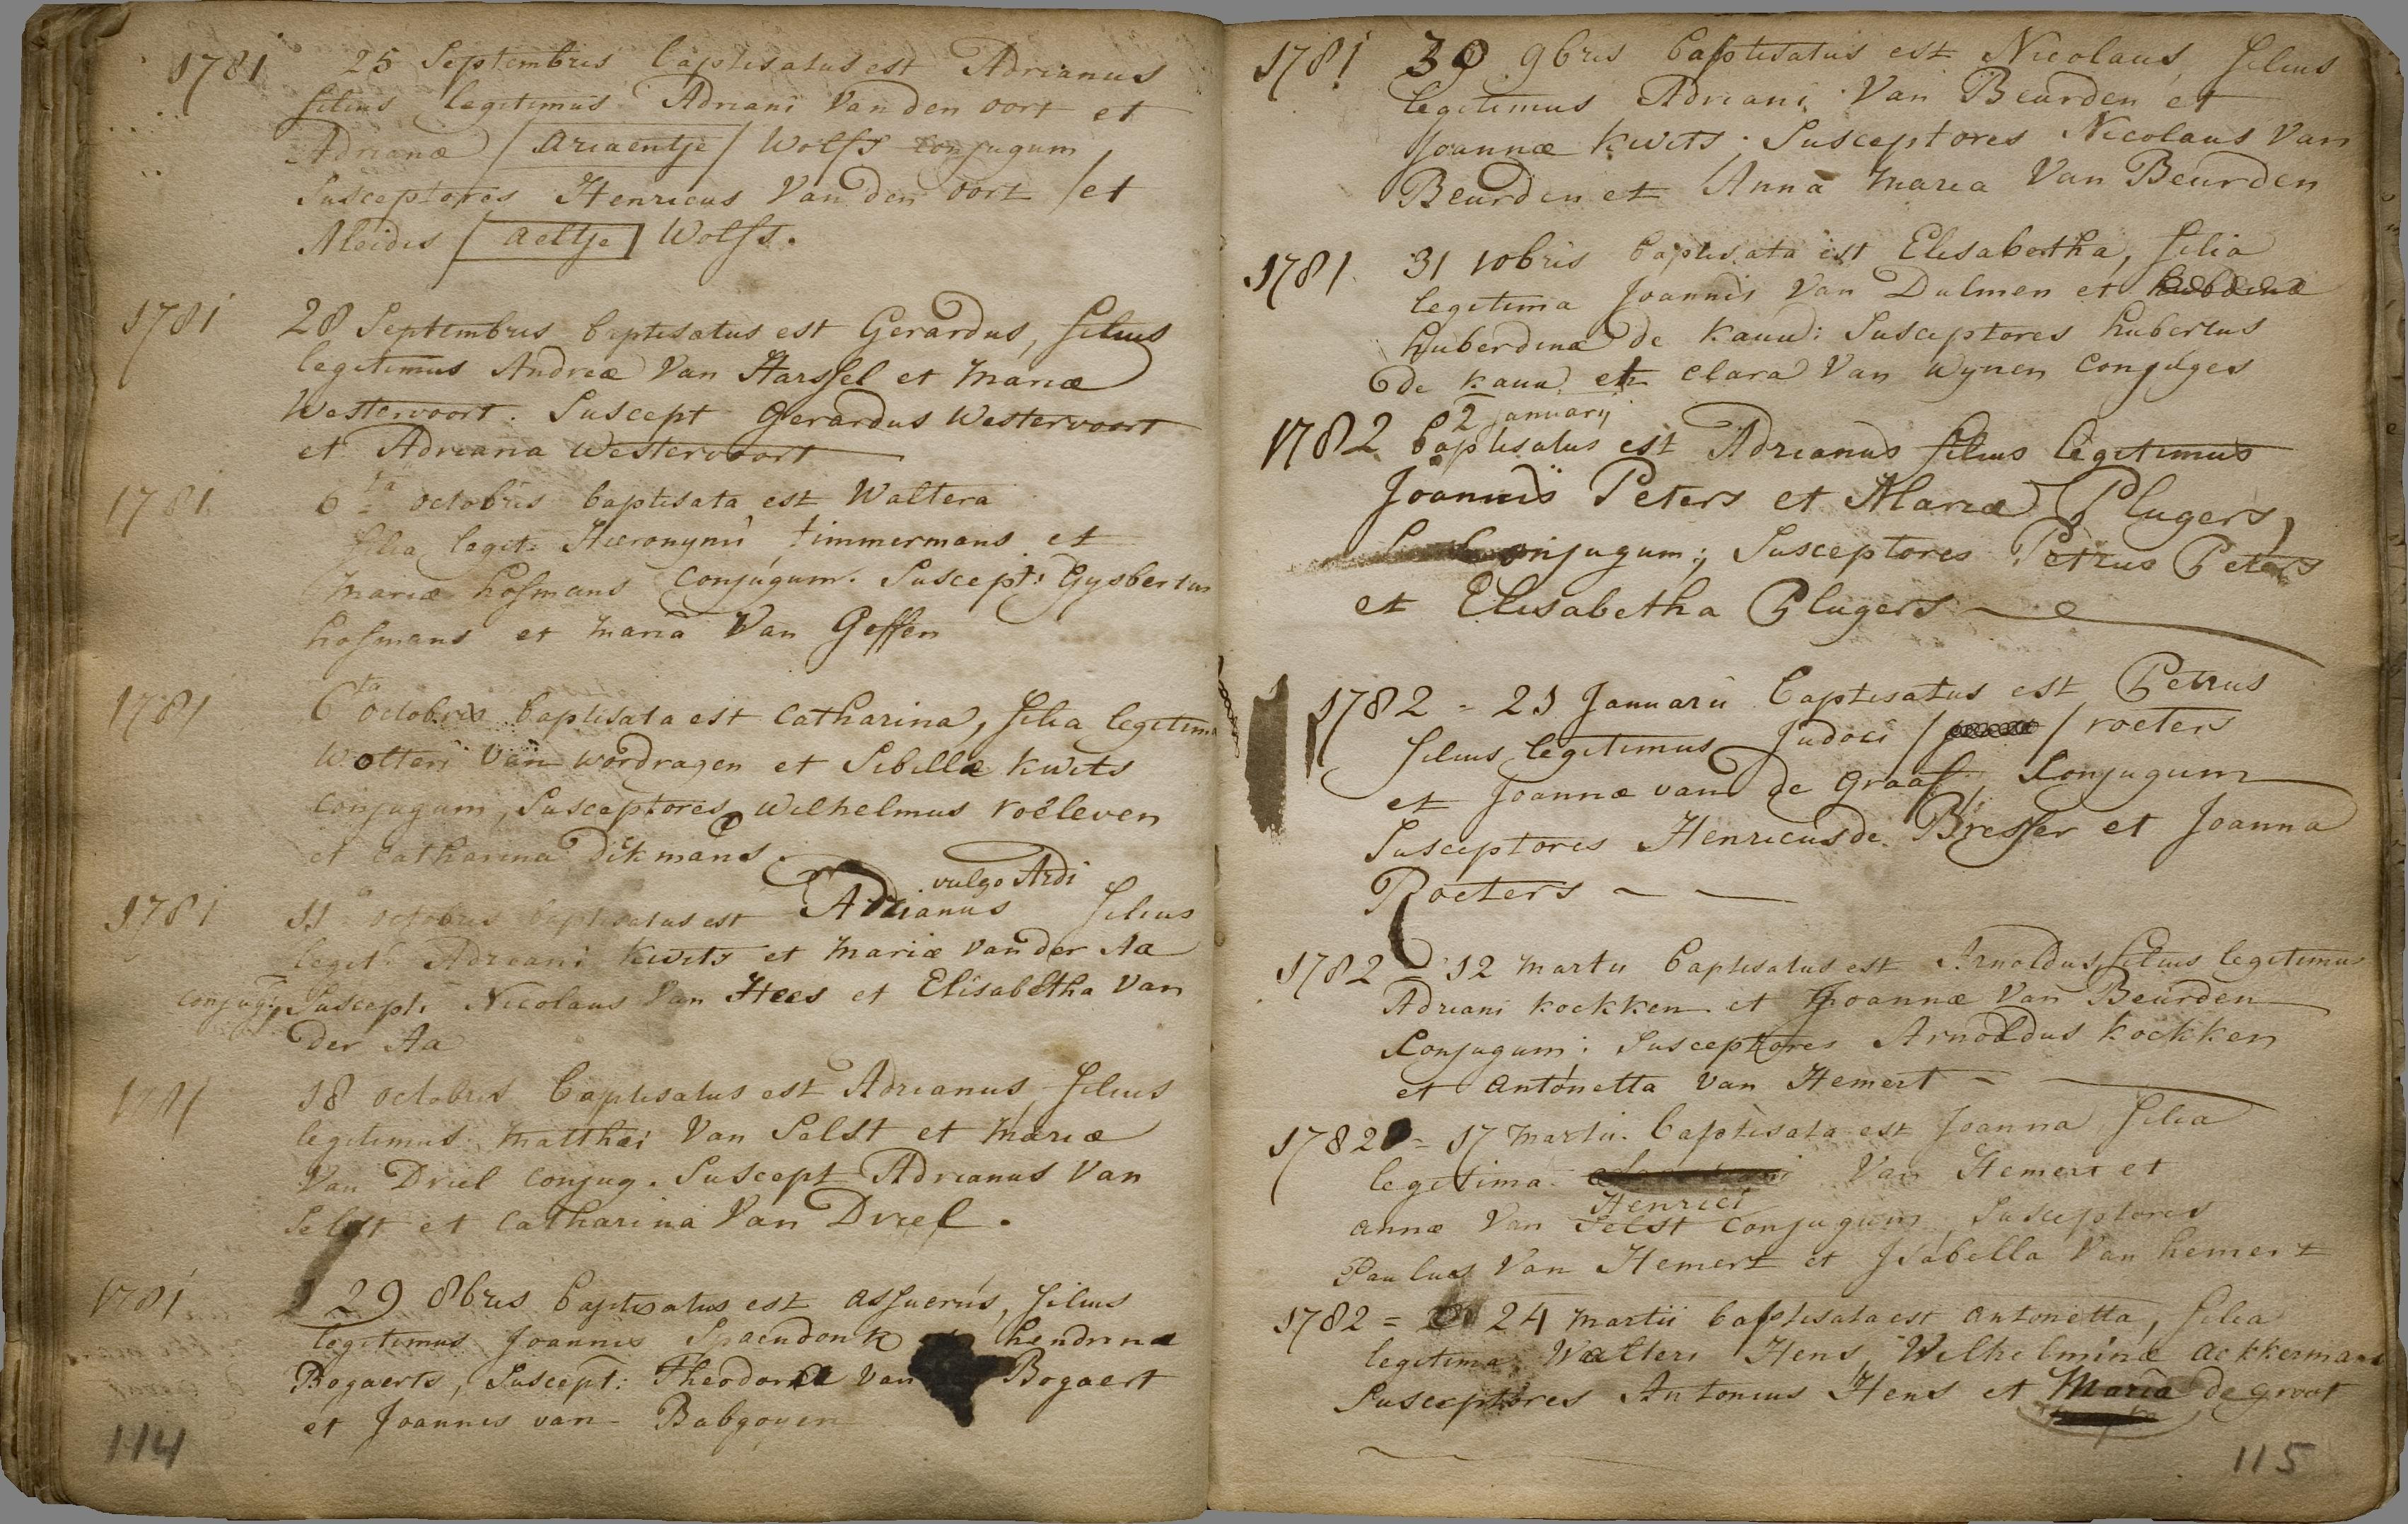 1781 25 Septembris baptisatus est Adrianus
filius legitimus Adriani Van den oort et
Adrianæ / Ariaentje / Wolfs conjugum
Susceptores Henricus Van den oort et
Aleidis / aeltje / Wolfs.
1781 28 Septembris baptisatus est Gerardus, filius
legitimus Andreæ Van Harssel et mariæ
Westervoort. Suscept Gerardus Westervoort
et Adriana Westervoort
1781 6ta octobris baptisata est Waltera
filia legit: Hieronymi timmermans et
mariæ hofmans conjugum. Suscept: Gysbertus
hofmans et maria Van Geffen
1781 6ta octobris baptisata est Catharina, filia legitima
Wolteri Van wordragen et Sibillæ Kwits
conjugum, Susceptores Wilhelmus roeleven
et catharina Dikmans.
vulgo Ardi
1781 11 octobris baptisatus est Adrianus filius
legit: Adriani Kwits et mariæ van der Aa
conjug: Suscept: Nicolaus Van Hees et Elisabetha Van
der Aa
1781 18 octobris baptisatus est Adrianus, filius
legitimus matthæi Van Selst et mariæ
Van Driel conjug. Suscept Adrianus Van
Selst et Catharina Van Driel.
1781 29 8bris baptisatus est assuerus, filius
legitimus Joannis Spaendonk hendrinæ
Bogaerts, Suscept: Theodora Van Bogaert
et Joannes van Babgoyen
114
1781 30 9bris baptisatus est Nicolaus, filius
legitimus Adriani Van Beurden et
Joannæ Kwits; Susceptores Nicolaus Van
Beurden et Anna maria Van Beurden
1781 31 10bris baptisata est Elisabertha, filia
legitima Joannis Van Dulmen et
huberdinæ de Kauu: Susceptores hubertus
de Kauu et clara Van Wynen conjuges
2 januarij
1782 baptisatus est Adrianus filius legitimus
Joannis Peters et Mariæ Plugers,
Conjugum; Susceptores Petrus Peters
et Elisabetha Plugers
1782 - 21 Januarii baptisatus est Petrus
filius legitimus Judoci / / roeters
et Joannæ van de graaf, Conjugum
Susceptores Henricus de Bresser et Joanna
Roeters
1782 - 12 martii baptisatus est Arnoldus, filius legitimus
Adriani kockken et Joannæ Van Beurden
Conjugum: Susceptores Arnoldus kockken
et antonetta van Hemert
1782 = 17 martii. baptisata est Joanna filia
legitima Van Hemert et
Henrici
annæ Van Selst Conjugum Susceptores
Paulus Van Hemert et Isabella Van hemert
1782 = 24 martii baptisata est antonetta, filia
legitima Walteri Hens, Wilhelminæ ackermans
Susceptores Antonius Hens et Maria de groot
115